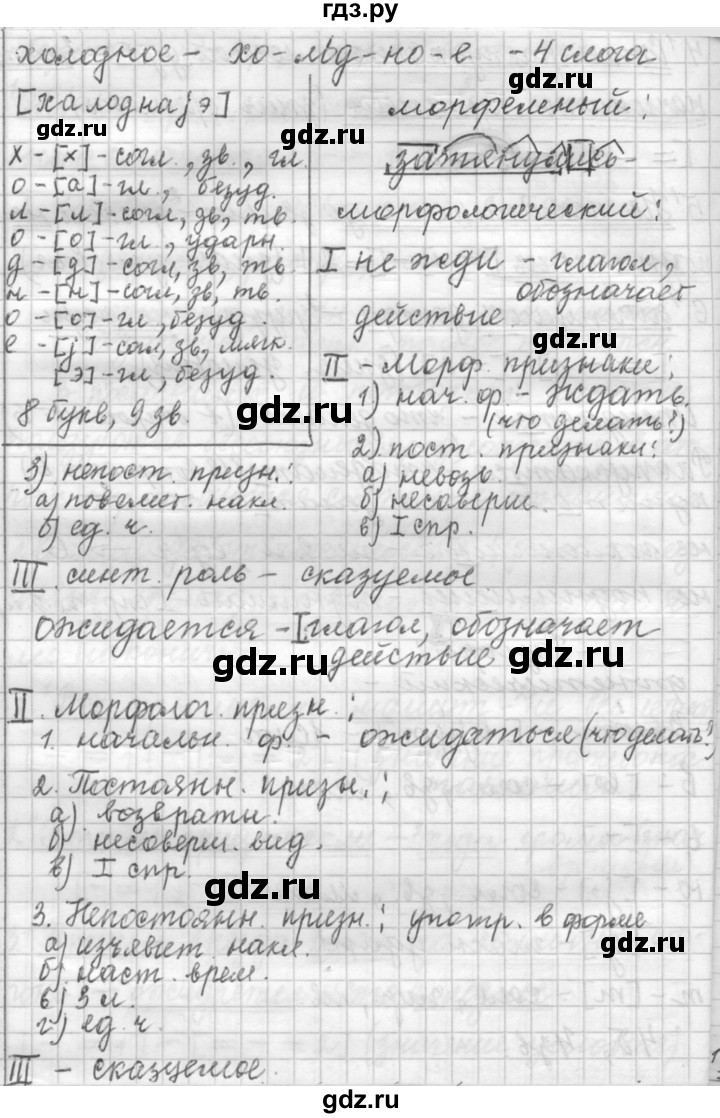 гдз.ру
холодное – хо-лод-но-е – 4 слога
[халоднаjэ]
х – [х] – согл., зв., гл.
о – [а] – гл., безуд.
л – [л] – согл, зв, тв.
о – [о] – гл., ударн.
д – [д] – согл, зв, тв.
н – [н] – согл, зв, тв.
о – [о] – гл, безуд.
е – [j] – согл, зв, мягк.
[э] – гл, безуд
8 букв, 9 зв.
морфемный:
затянулись –
морфологический:
I не жди – глагол,
обозначает
действие
II – Морф. признаки:
1) нач. ф. – Ждать.
(что делать?)
2) пост. признаки:
а) невозв.
б) несоверш.
в) I спр.
3) непост. призн.:
а) повелит. накл.
б) ед. ч.
III. синт. роль – сказуемое
ожидается – I глагол, обозначает
действие
II. Морфолог. призн.:
1. начальн. ф. – ожидаться (что делать?)
2. Постоянн. призн.:
а) возвратн.
б) несоверш. вид.
в) I спр.
3. Непостоянн. призн.: употр. в форме
а) изъявит. накл.
б) наст. врем.
в) 3 л.
г) ед. ч.
III – сказуемое.
gdz.ru
gdz.ru
gdz.ru
gdz.ru
gdz.ru
gdz.ru
gdz.ru
gdz.ru
gdz.ru
gdz.ru